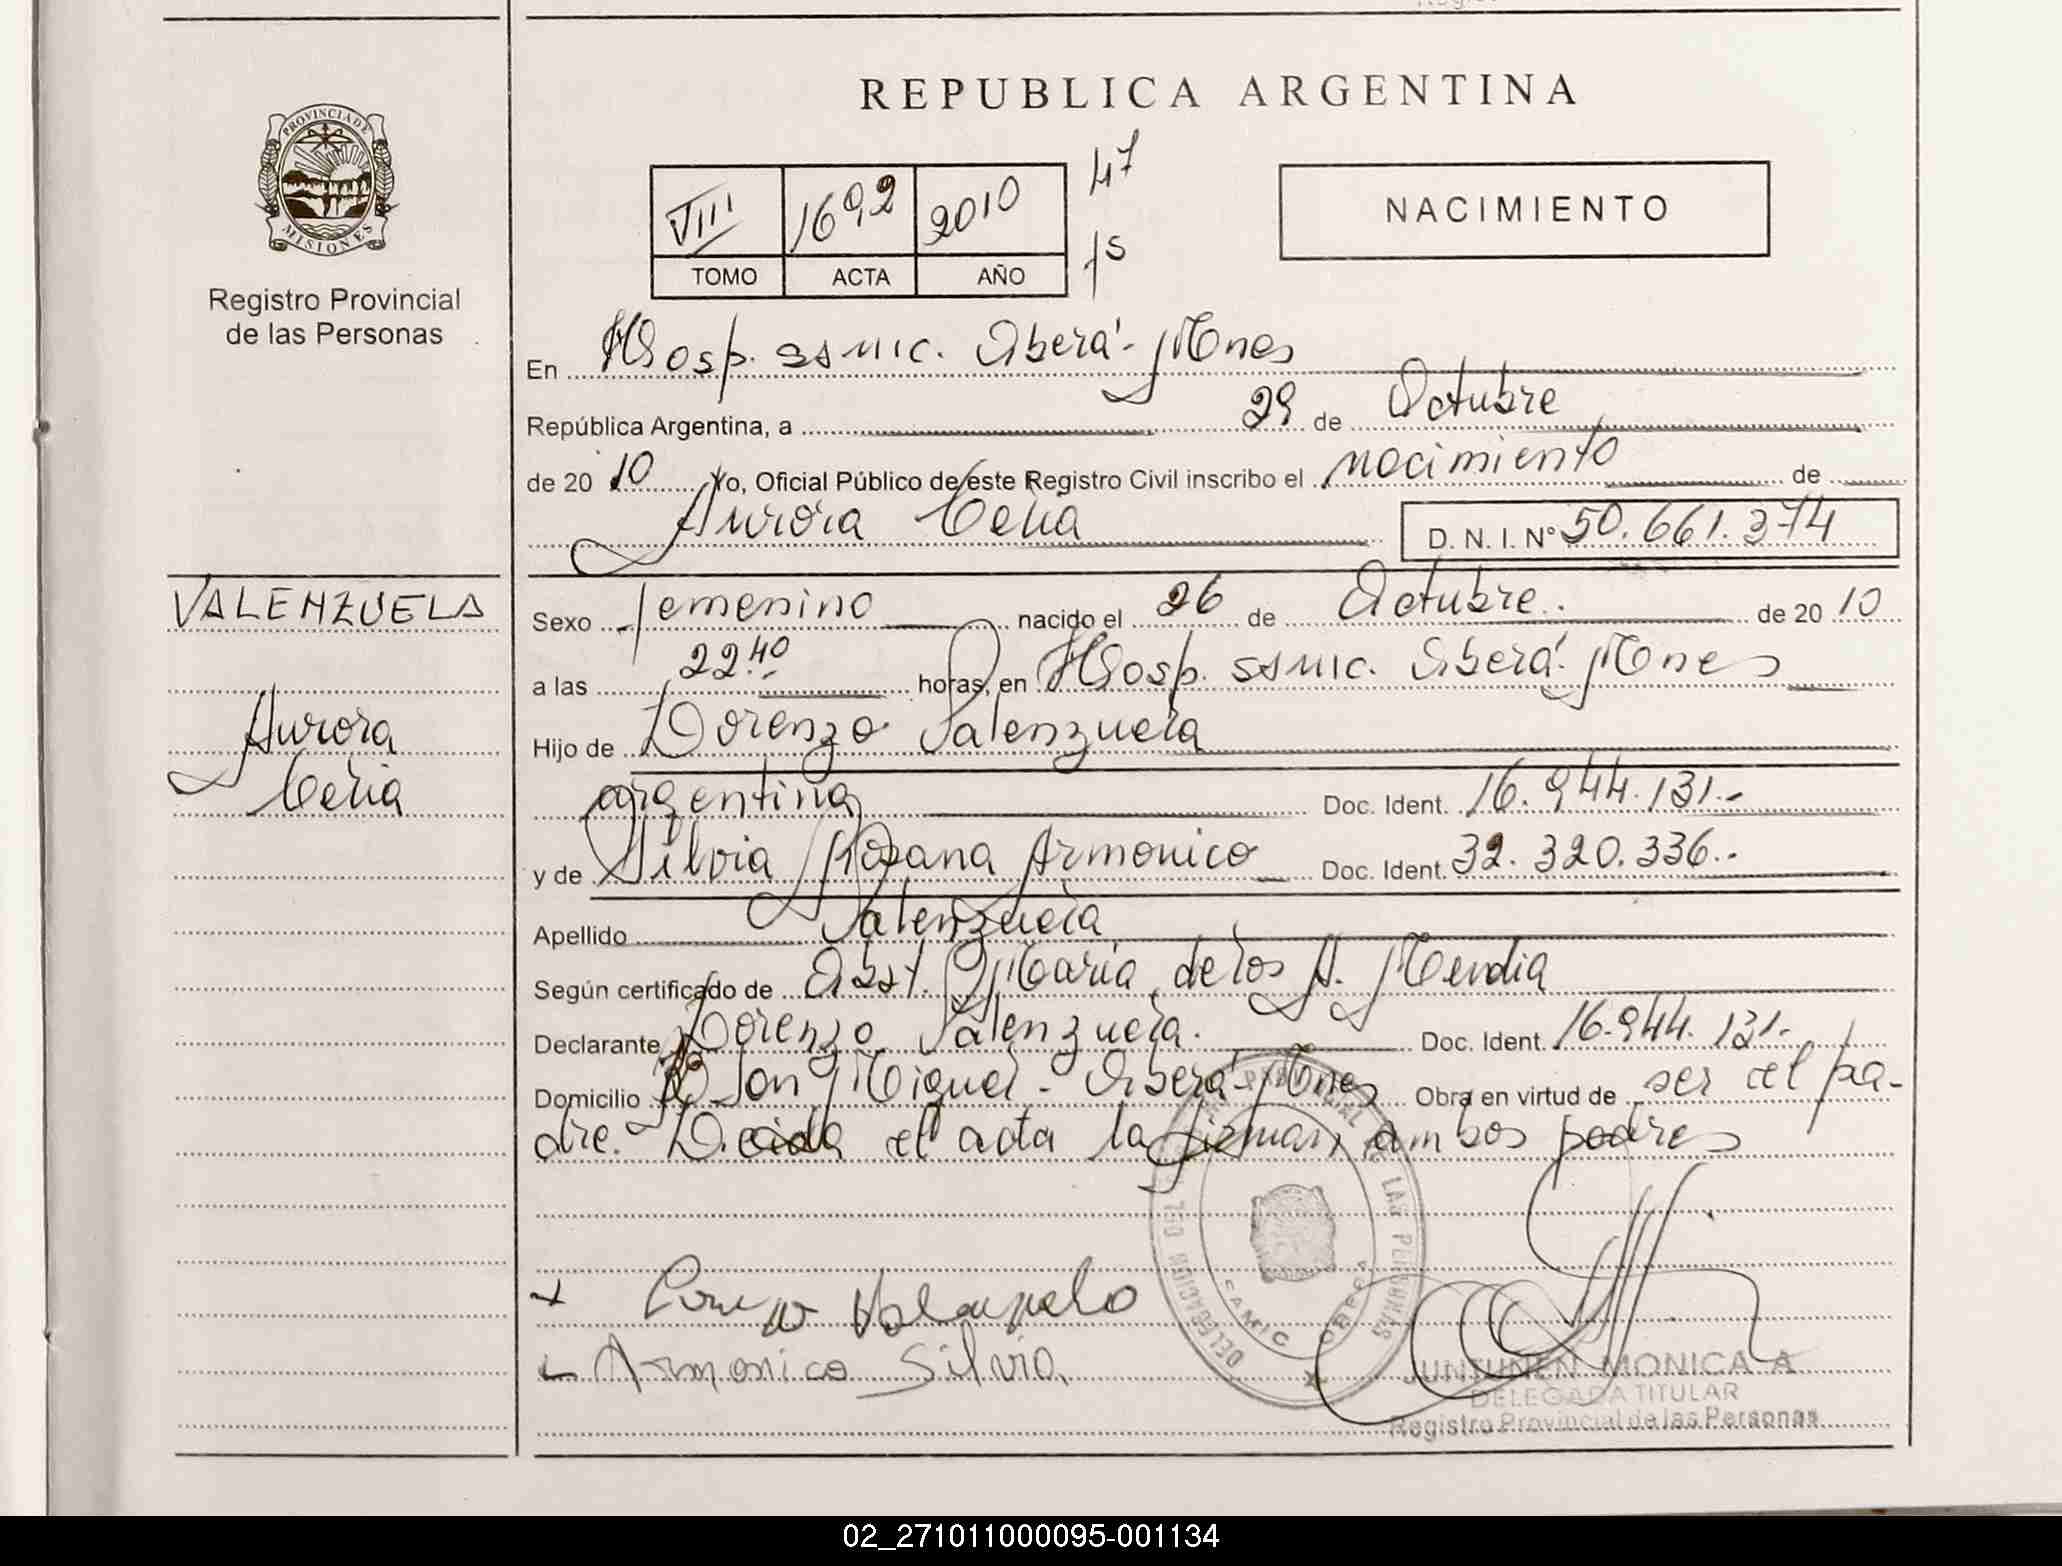 REPUBLICA ARGENTINA
PROVINCIA DE
MISIONES
Registro Provincial
de las Personas
VIII 1692 2010 47
TOMO ACTA AÑO 15
NACIMIENTO
En Hosp. SAMIC. Oberá - Mnes
República Argentina, a 29 de Octubre
de 2010 Yo, Oficial Público de este Registro Civil inscribo el nacimiento de
Aurora Celia D. N. I. Nº 50.661.374
VALENZUELA
Aurora
Celia
Sexo femenino nacido el 26 de Octubre.. de 2010
a las 22:40 horas, en Hosp. SAMIC. Oberá. Mnes
Hijo de Lorenzo Valenzuela
argentina Doc. Ident. 16.944.131.-
y de Silvia Rosana Armonico Doc. Ident. 32.320.336.-
Apellido Valenzuela
Según certificado de Obst. María de los A. Mendia
Declarante Lorenzo Valenzuela. Doc. Ident. 16.944.131.-
Domicilio Bº San Miguel - Oberá - Mnes Obra en virtud de ser el pa-
dre. Leida el acta la firman ambos padres
Armonico Silvia
DELEGACION
LAS PERSONAS
SAMIC OBERA
JUNTUNEN MONICA A
DELEGADA TITULAR
Registro Provincial de las Personas
02_271011000095-001134